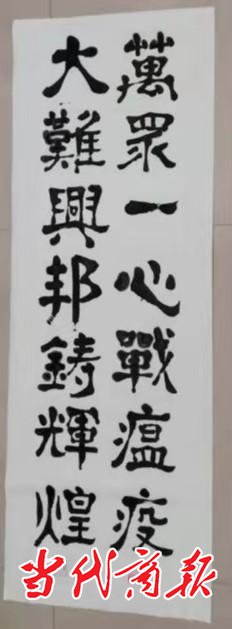 萬眾一心戰瘟疫
大難興邦鑄輝煌
当代商报